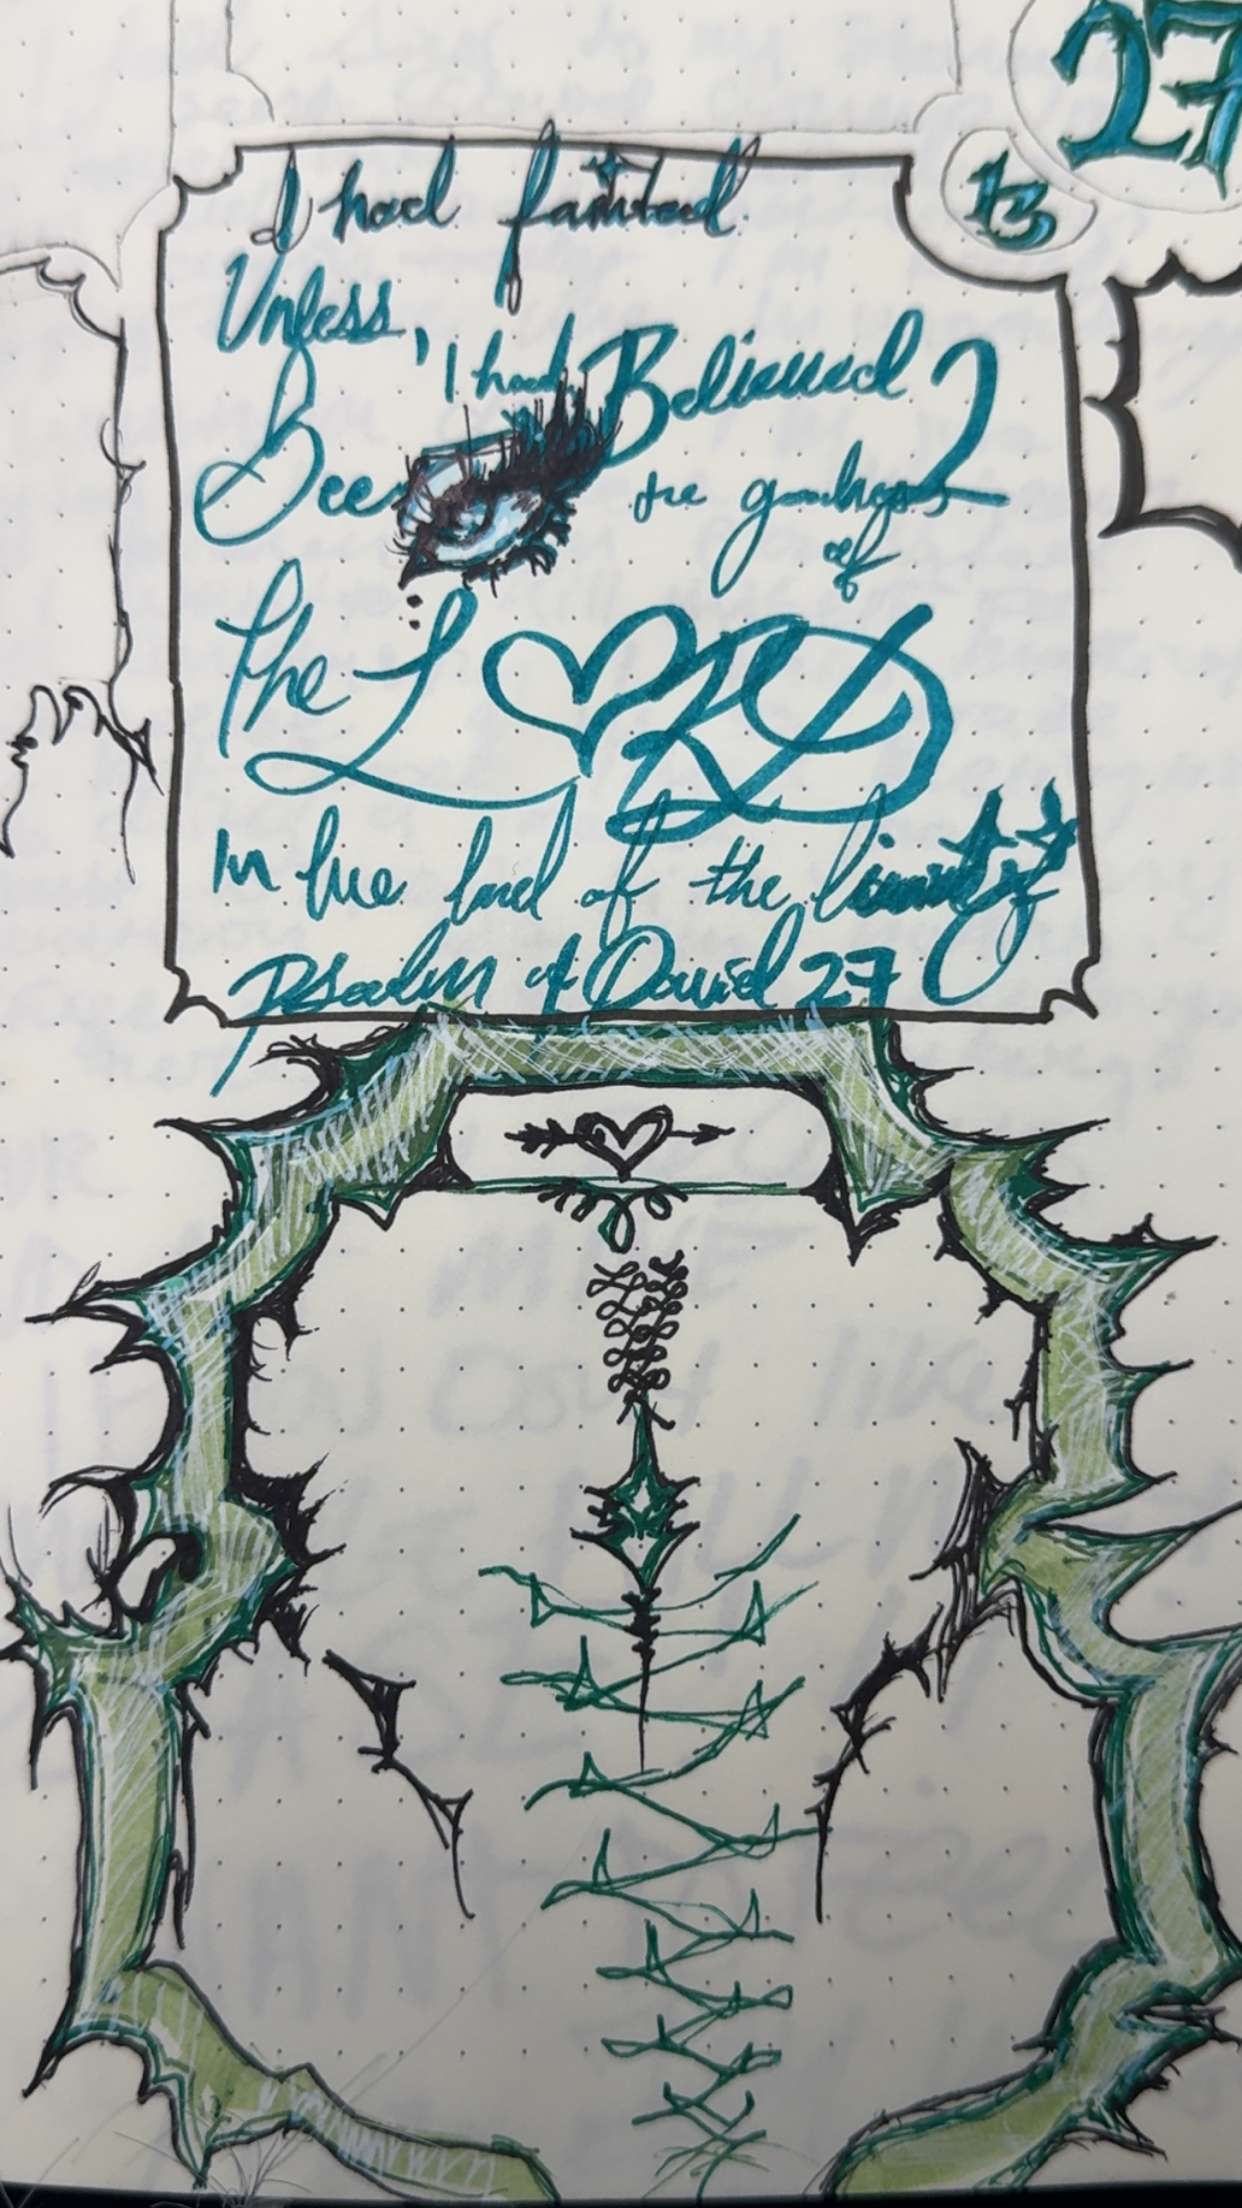 27
13
I had fainted
Unless,
I had Believed 2
See the goodness
of
The L♡RD
In the land of the living
Psalm of David 27